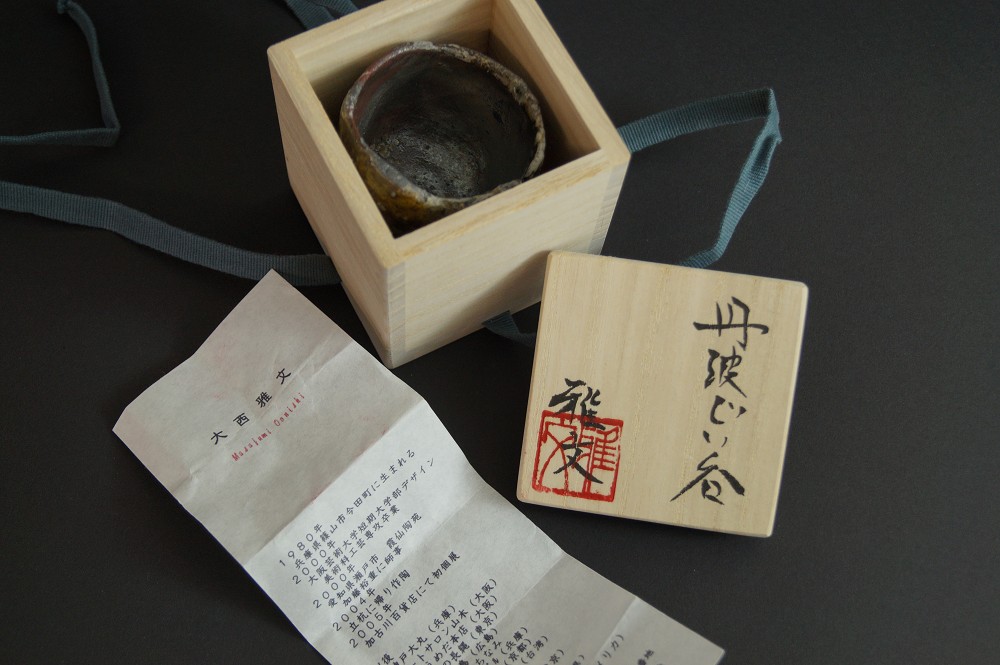 丹波ぐい呑
雅文
雅文
大西雅文
Masafumi Oonishi
1980年
兵庫県篠山市今田町に生まれる
2000年
大阪芸術大学短期大学部デザイン
美術科工芸専攻卒業
2000年
愛知県瀬戸市 霞仙陶苑
加藤裕重に師事
2004年
立杭に帰り作陶
2005年
加古川百貨店にて初個展
後
戸大丸(兵庫)
トサロン山木(大阪)
うめだ本店(大阪)
(東京)
ちなみ(広島)
(京都)
(兵庫)
(台湾)